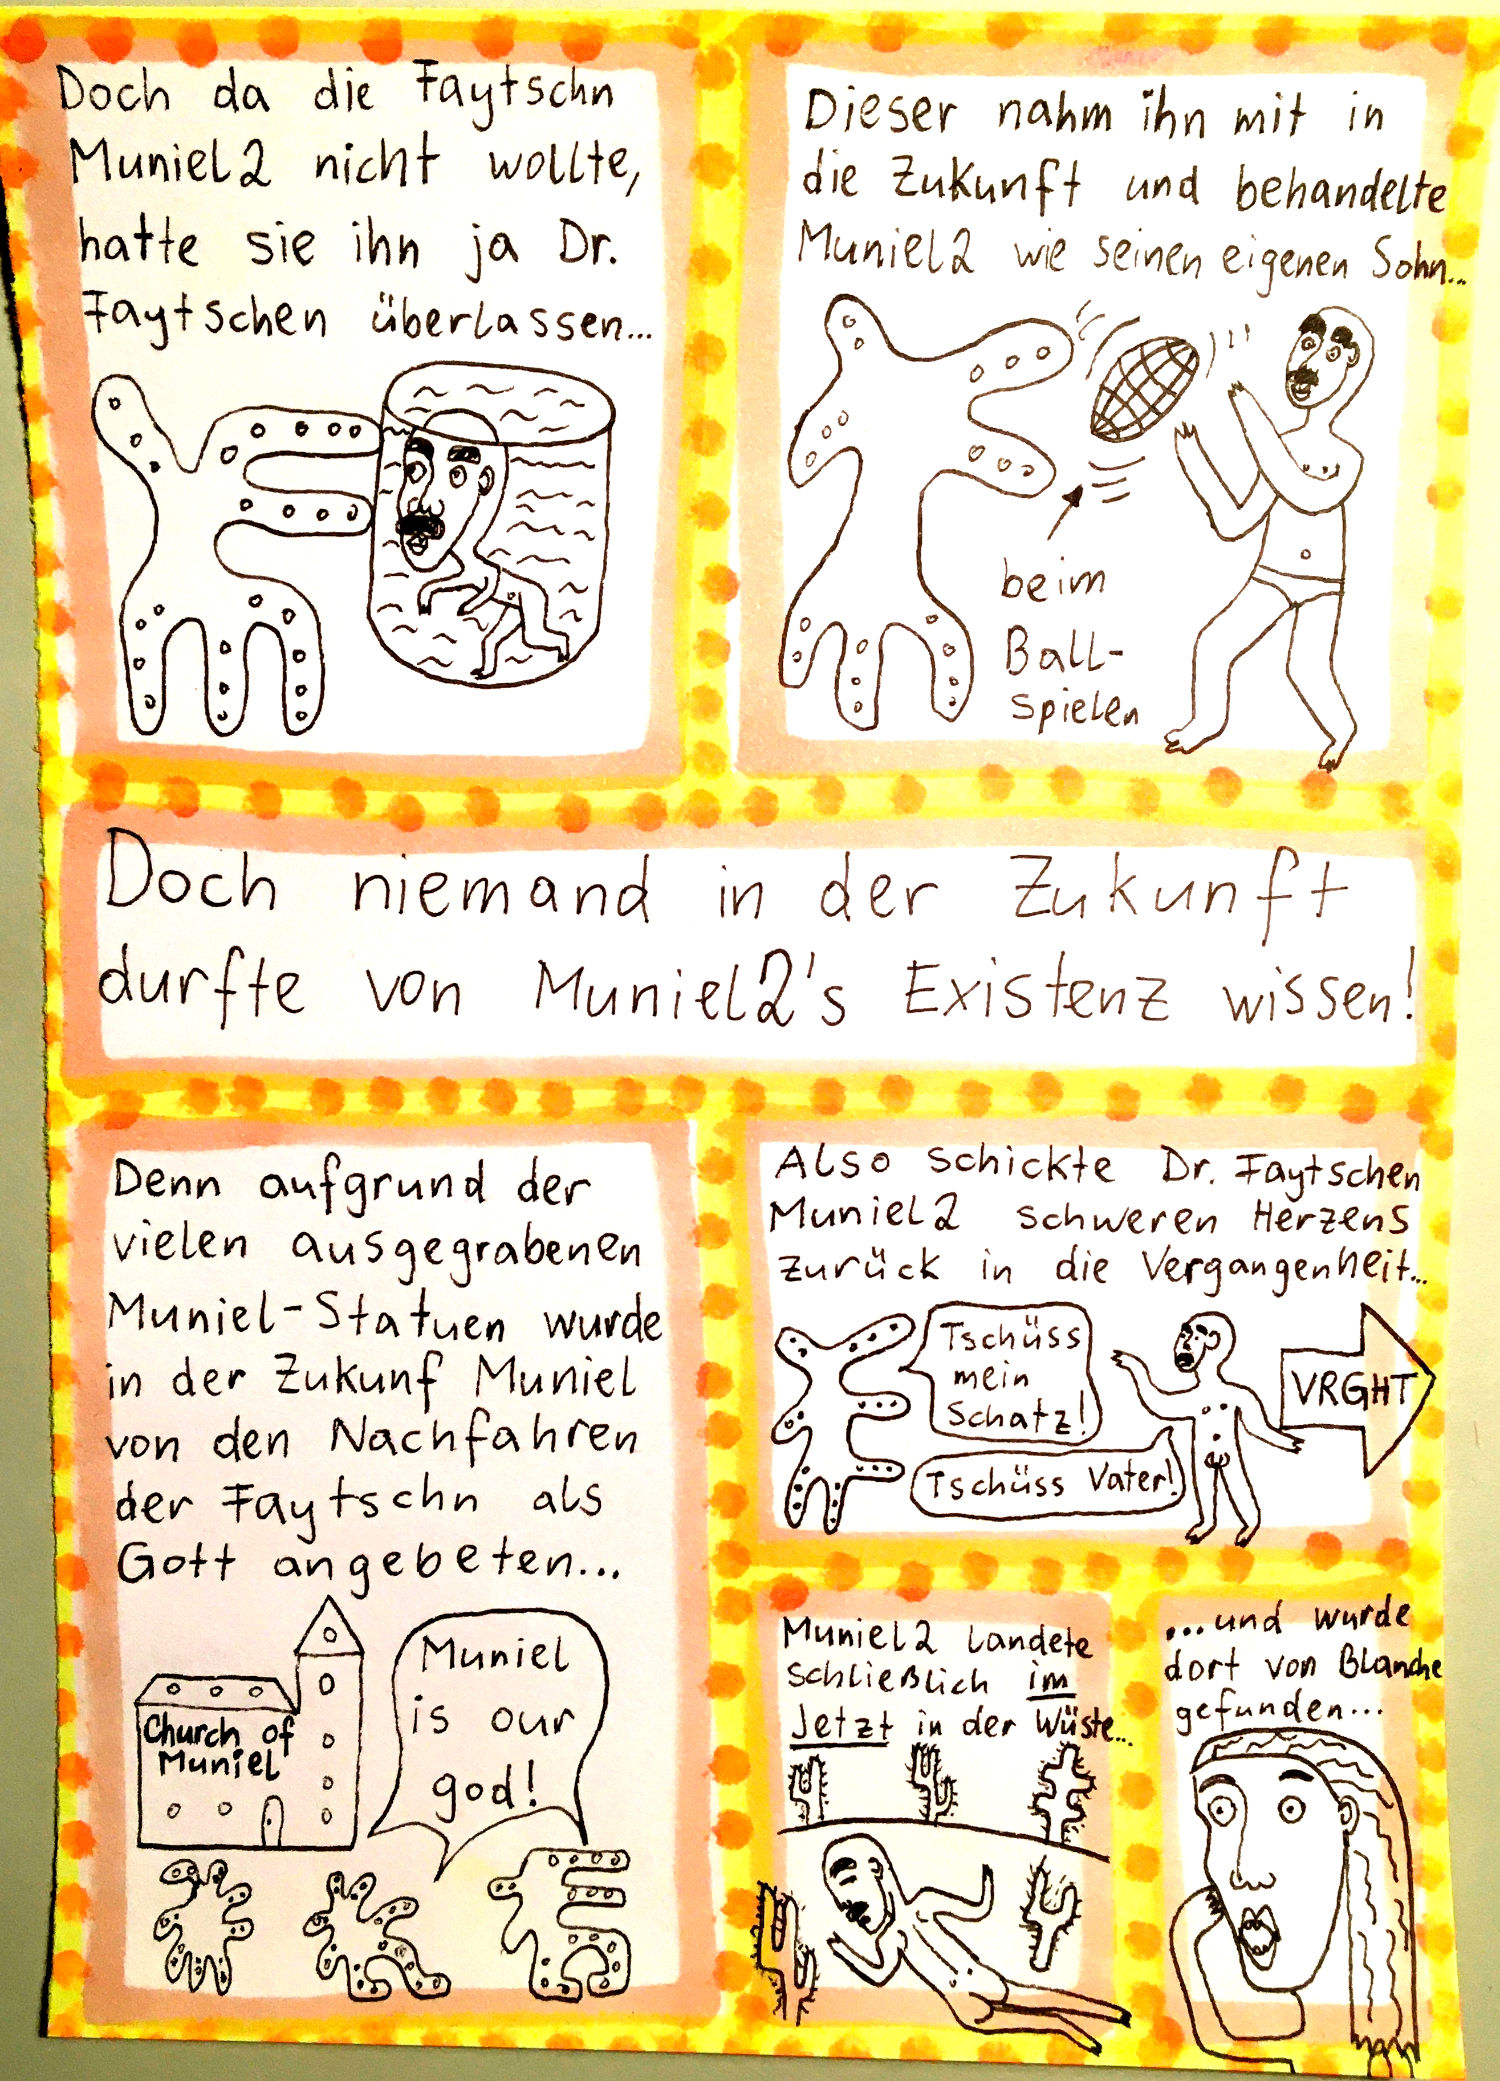 Doch da die Faytschn
Muniel2 nicht wollte,
hatte sie ihn ja Dr.
Faytschen überlassen...
Dieser nahm ihn mit in
die Zukunft und behandelte
Muniel2 wie seinen eigenen Sohn...
beim
Ball-
spielen
Doch niemand in der Zukunft
durfte von Muniel2's Existenz wissen!
Denn aufgrund der
vielen ausgegrabenen
Muniel-Statuen wurde
in der Zukunf Muniel
von den Nachfahren
der Faytschn als
Gott angebeten...
Church of
Muniel
Muniel
is our
god!
Also schickte Dr. Faytschen
Muniel2 schweren Herzens
zurück in die Vergangenheit...
Tschüss
mein
Schatz!
Tschüss Vater!
VRGHT
Muniel2 landete
schließlich im
Jetzt in der Wüste...
...und wurde
dort von Blanche
gefunden...